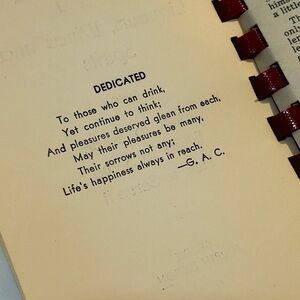 DEDICATED
To those who can drink,
Yet continue to think;
And pleasures deserved glean from each,
May their pleasures be many,
Their sorrows not any;
Life's happiness always in reach.
—G. A. C.
him
a little
Th
only